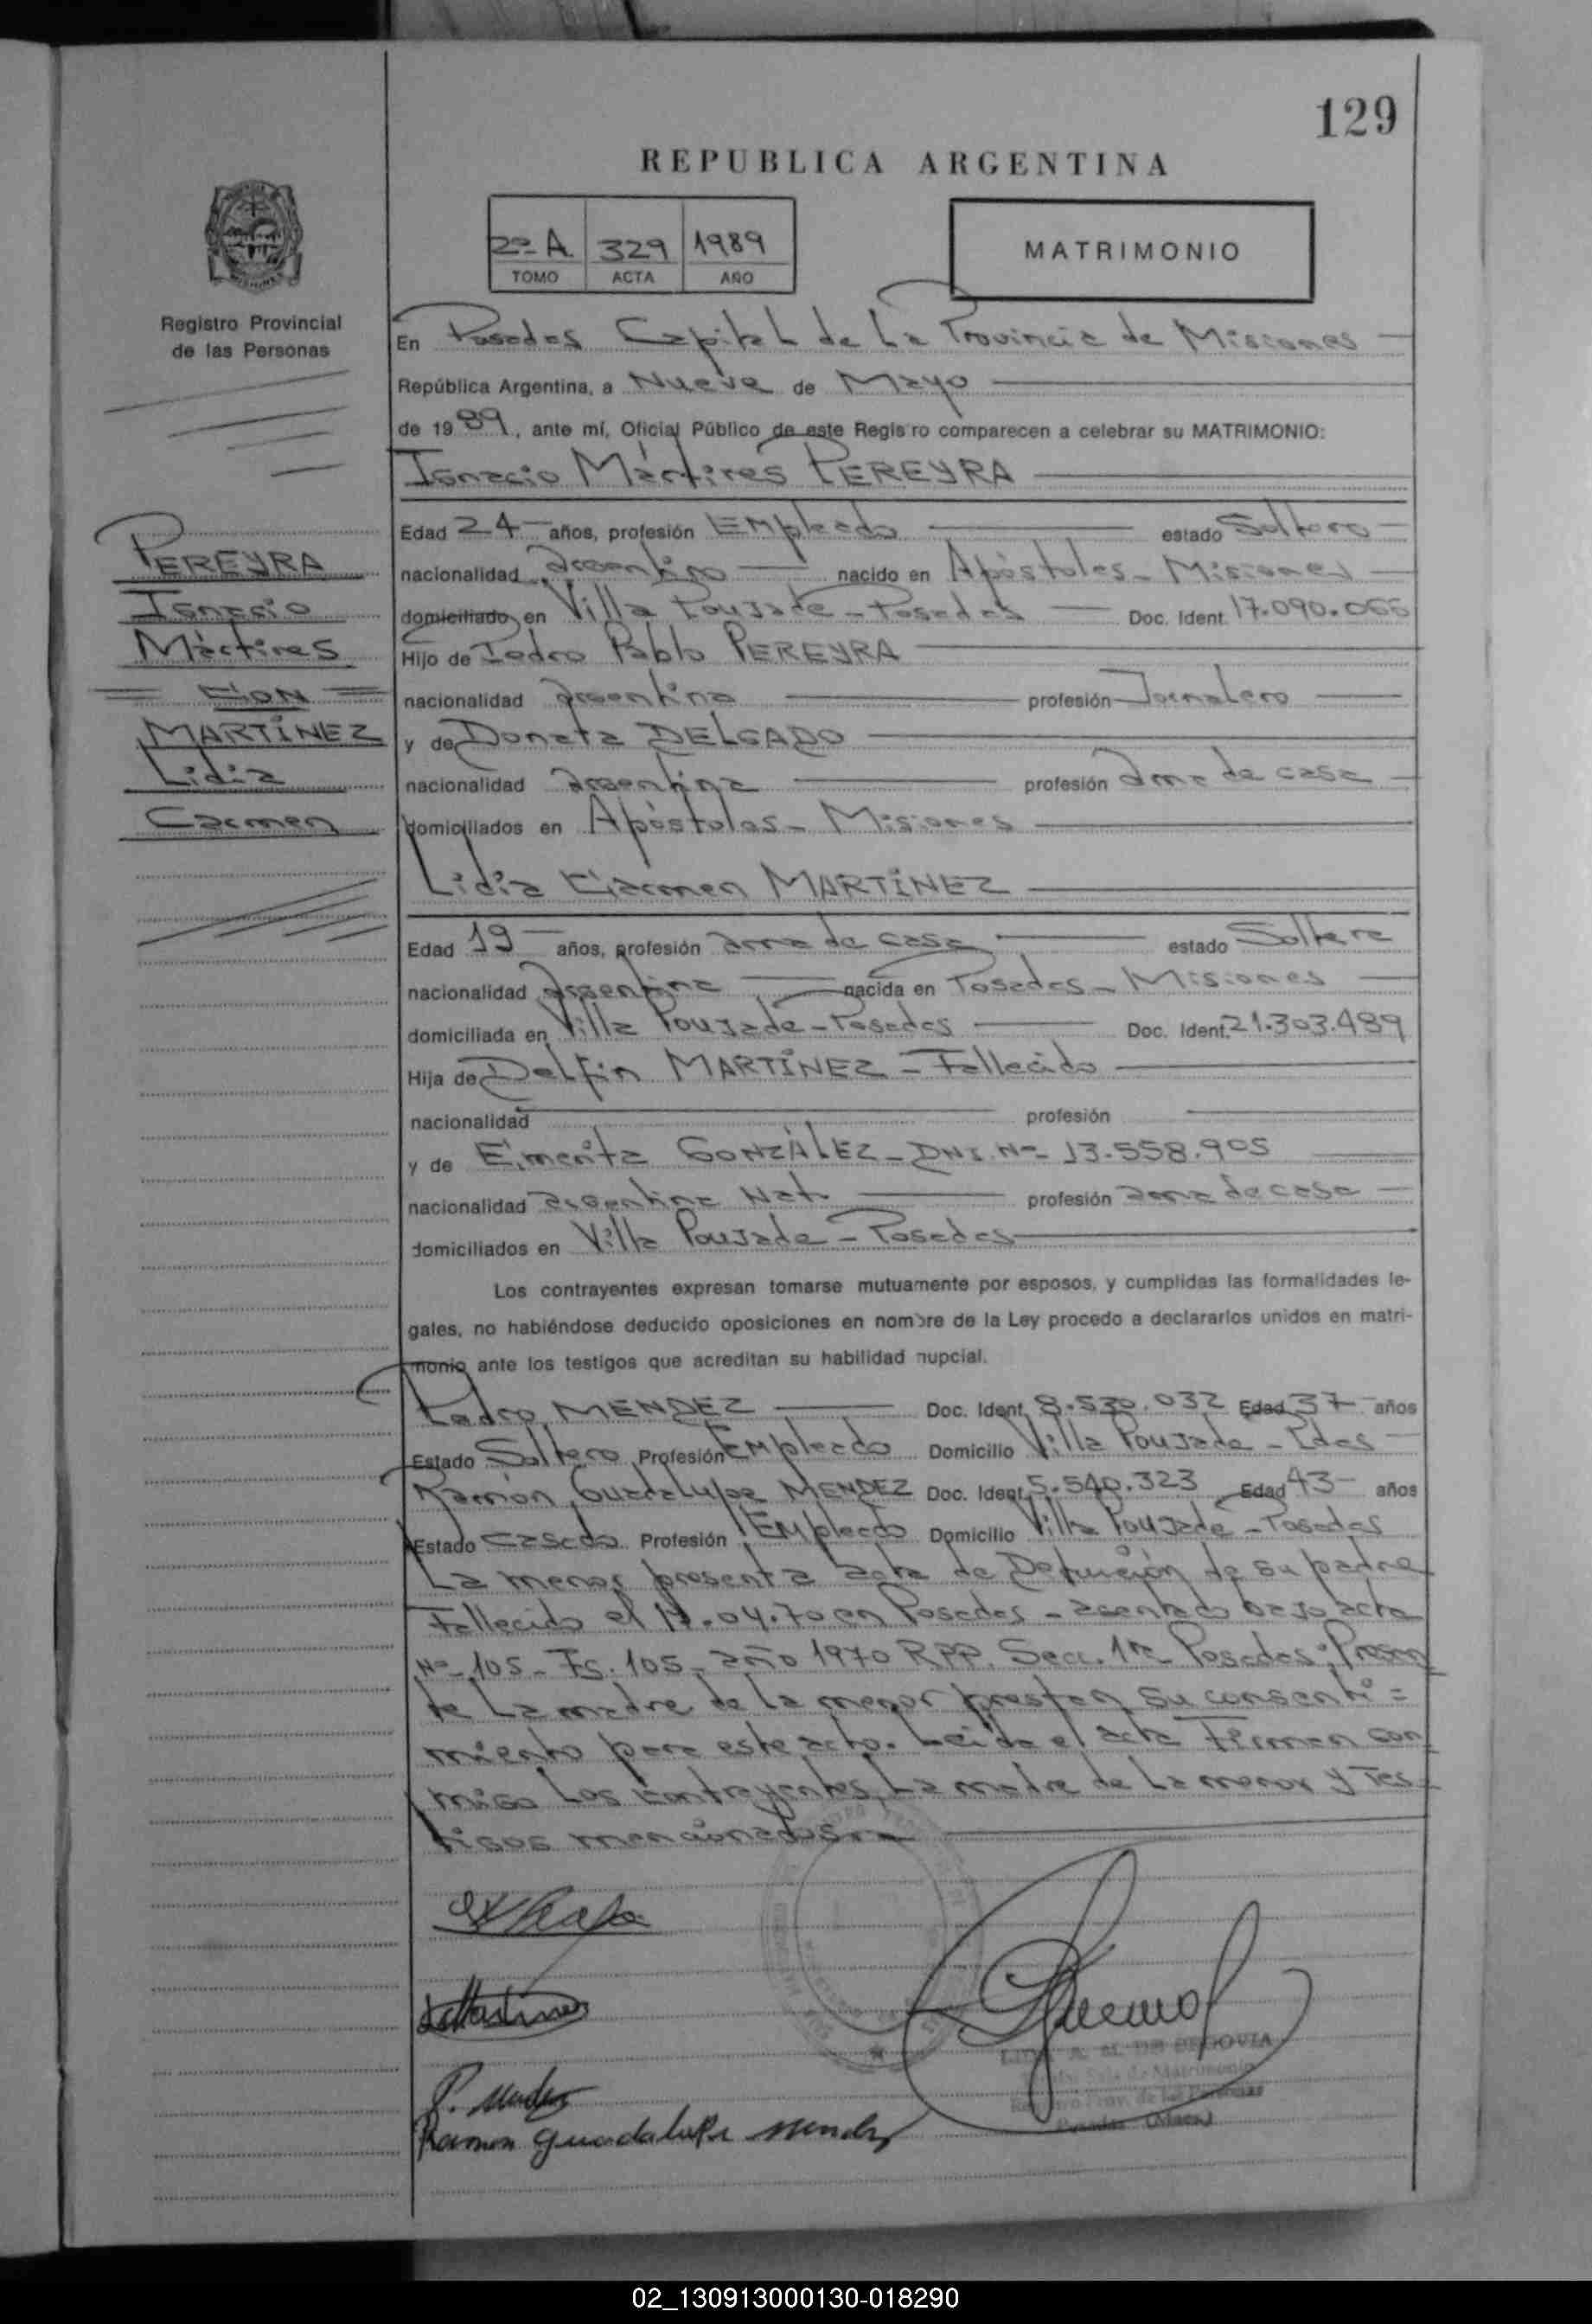 129
REPUBLICA ARGENTINA
2º A 329 1989
TOMO ACTA AÑO
MATRIMONIO
Registro Provincial
de las Personas
En Posadas Capital de La Provincia de Misiones
República Argentina, a Nueve de Mayo
de 1989, ante mí, Oficial Público de este Registro comparecen a celebrar su MATRIMONIO:
Ignacio Mártires PEREYRA
Edad 24 años, profesión Empleado estado Soltero
nacionalidad argentino nacido en Apóstoles - Misiones
domiciliado en Villa Poujade - Posadas Doc. Ident. 17.090.066
Hijo de Pedro Pablo PEREYRA
nacionalidad argentina profesión Jornalero
y de Donata DELGADO
nacionalidad argentina profesión ama de casa
domiciliados en Apóstoles - Misiones
PEREYRA
Ignacio
Mártires
CON
MARTÍNEZ
Lidia
Carmen
Lidia Carmen MARTÍNEZ
Edad 19 años, profesión ama de casa estado Soltera
nacionalidad argentina nacida en Posadas - Misiones
domiciliada en Villa Poujade - Posadas Doc. Ident. 21.303.489
Hija de Delfín MARTÍNEZ - Fallecido
nacionalidad profesión
y de Eimerita GONZÁLEZ - DNI. Nº 13.558.905
nacionalidad argentina Nat. profesión ama de casa
domiciliados en Villa Poujade - Posadas
Los contrayentes expresan tomarse mutuamente por esposos, y cumplidas las formalidades le-
gales, no habiéndose deducido oposiciones en nombre de la Ley procedo a declararlos unidos en matri-
monio ante los testigos que acreditan su habilidad nupcial.
Pedro MENDEZ Doc. Ident. 8.530.032 Edad 37 años
Estado Soltero Profesión Empleado Domicilio Villa Poujade - Pdas
Ramón Guadalupe MENDEZ Doc. Ident. 5.540.323 Edad 43 años
Estado Casado Profesión Empleado Domicilio Villa Poujade - Posadas
La menor presenta acta de Defunción de su padre
Fallecido el 17.04.70 en Posadas - asentado bajo acta
Nº 105 - Fs. 105 - año 1970 RPP. Secc. 1ra Posadas; Presen
te La madre de la menor prestan su consenti=
miento para este acto. Leída el acta Firman con
migo Los contrayentes, La madre de La menor y Tes
tigos mencionados.
P. Mendez
Ramon Guadalupe Mendez
LIDIA A. M. DE SEGOVIA
02_130913000130-018290